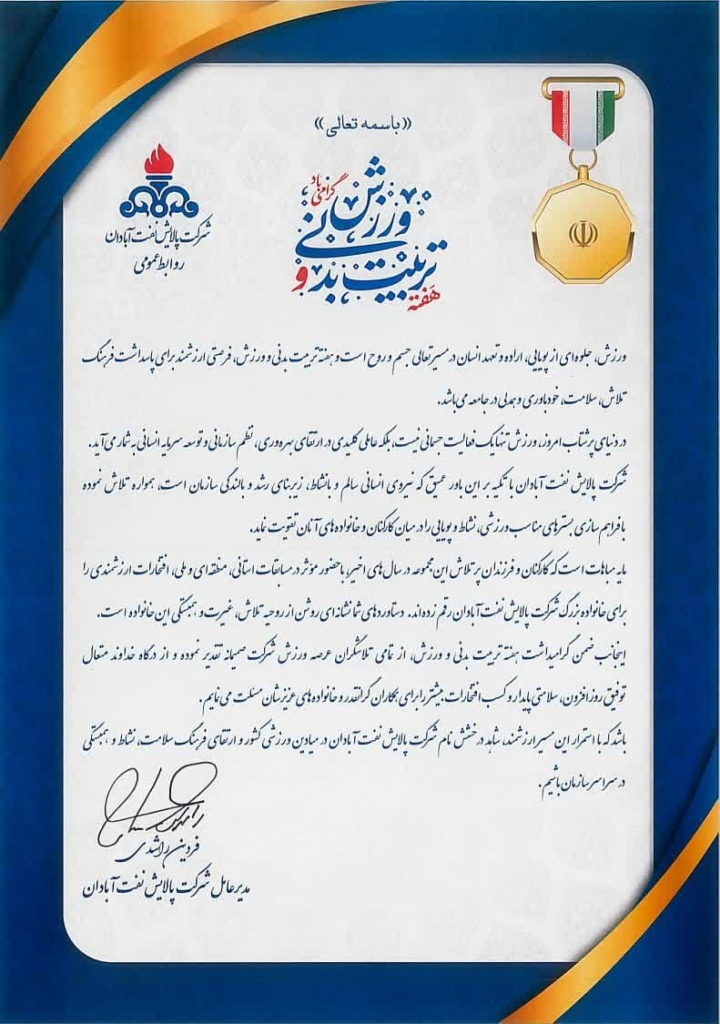 «باسمه تعالی»
شرکت پالایش نفت آبادان
روابط عمومی
هفته تربیت بدنی و ورزش گرامی باد
ورزش، جلوه‌ای از پویایی، اراده و تعهد انسان در مسیر تعالی جسم و روح است و هفته تربیت بدنی و ورزش، فرصتی ارزشمند برای پاسداشت فرهنگ
تلاش، سلامت، خودباوری و همدلی در جامعه می‌باشد.
در دنیای پرشتاب امروز، ورزش تنها یک فعالیت جسمانی نیست، بلکه عاملی کلیدی در ارتقای بهره‌وری، نظم سازمانی و توسعه سرمایه انسانی به شمار می‌آید.
شرکت پالایش نفت آبادان با تکیه بر این باور عمیق که نیروی انسانی سالم و بانشاط، زیربنای رشد و بالندگی سازمان است، همواره تلاش نموده
با فراهم سازی بسترهای مناسب ورزشی، نشاط و پویایی را در میان کارکنان و خانواده‌های آنان تقویت نماید.
مایه مباهات است که کارکنان و فرزندان پر تلاش این مجموعه در سال‌های اخیر، با حضور مؤثر در مسابقات استانی، منطقه‌ای و ملی، افتخارات ارزشمندی را
برای خانواده بزرگ شرکت پالایش نفت آبادان رقم زده‌اند. دستاوردهای شما نشانه‌ای روشن از روحیه تلاش، غیرت و همبستگی این خانواده است.
اینجانب ضمن گرامیداشت هفته تربیت بدنی و ورزش، از تمامی تلاشگران عرصه ورزش شرکت صمیمانه تقدیر نموده و از درگاه خداوند متعال
توفیق روزافزون، سلامتی پایدار و کسب افتخارات بیشتر را برای همکاران گرانقدر و خانواده‌های عزیزشان مسئلت می‌نمایم.
باشد که با استمرار این مسیر ارزشمند، شاهد درخشش نام شرکت پالایش نفت آبادان در میادین ورزشی کشور و ارتقای فرهنگ سلامت، نشاط و همبستگی
در سراسر سازمان باشیم.
فردین راشدی
مدیرعامل شرکت پالایش نفت آبادان